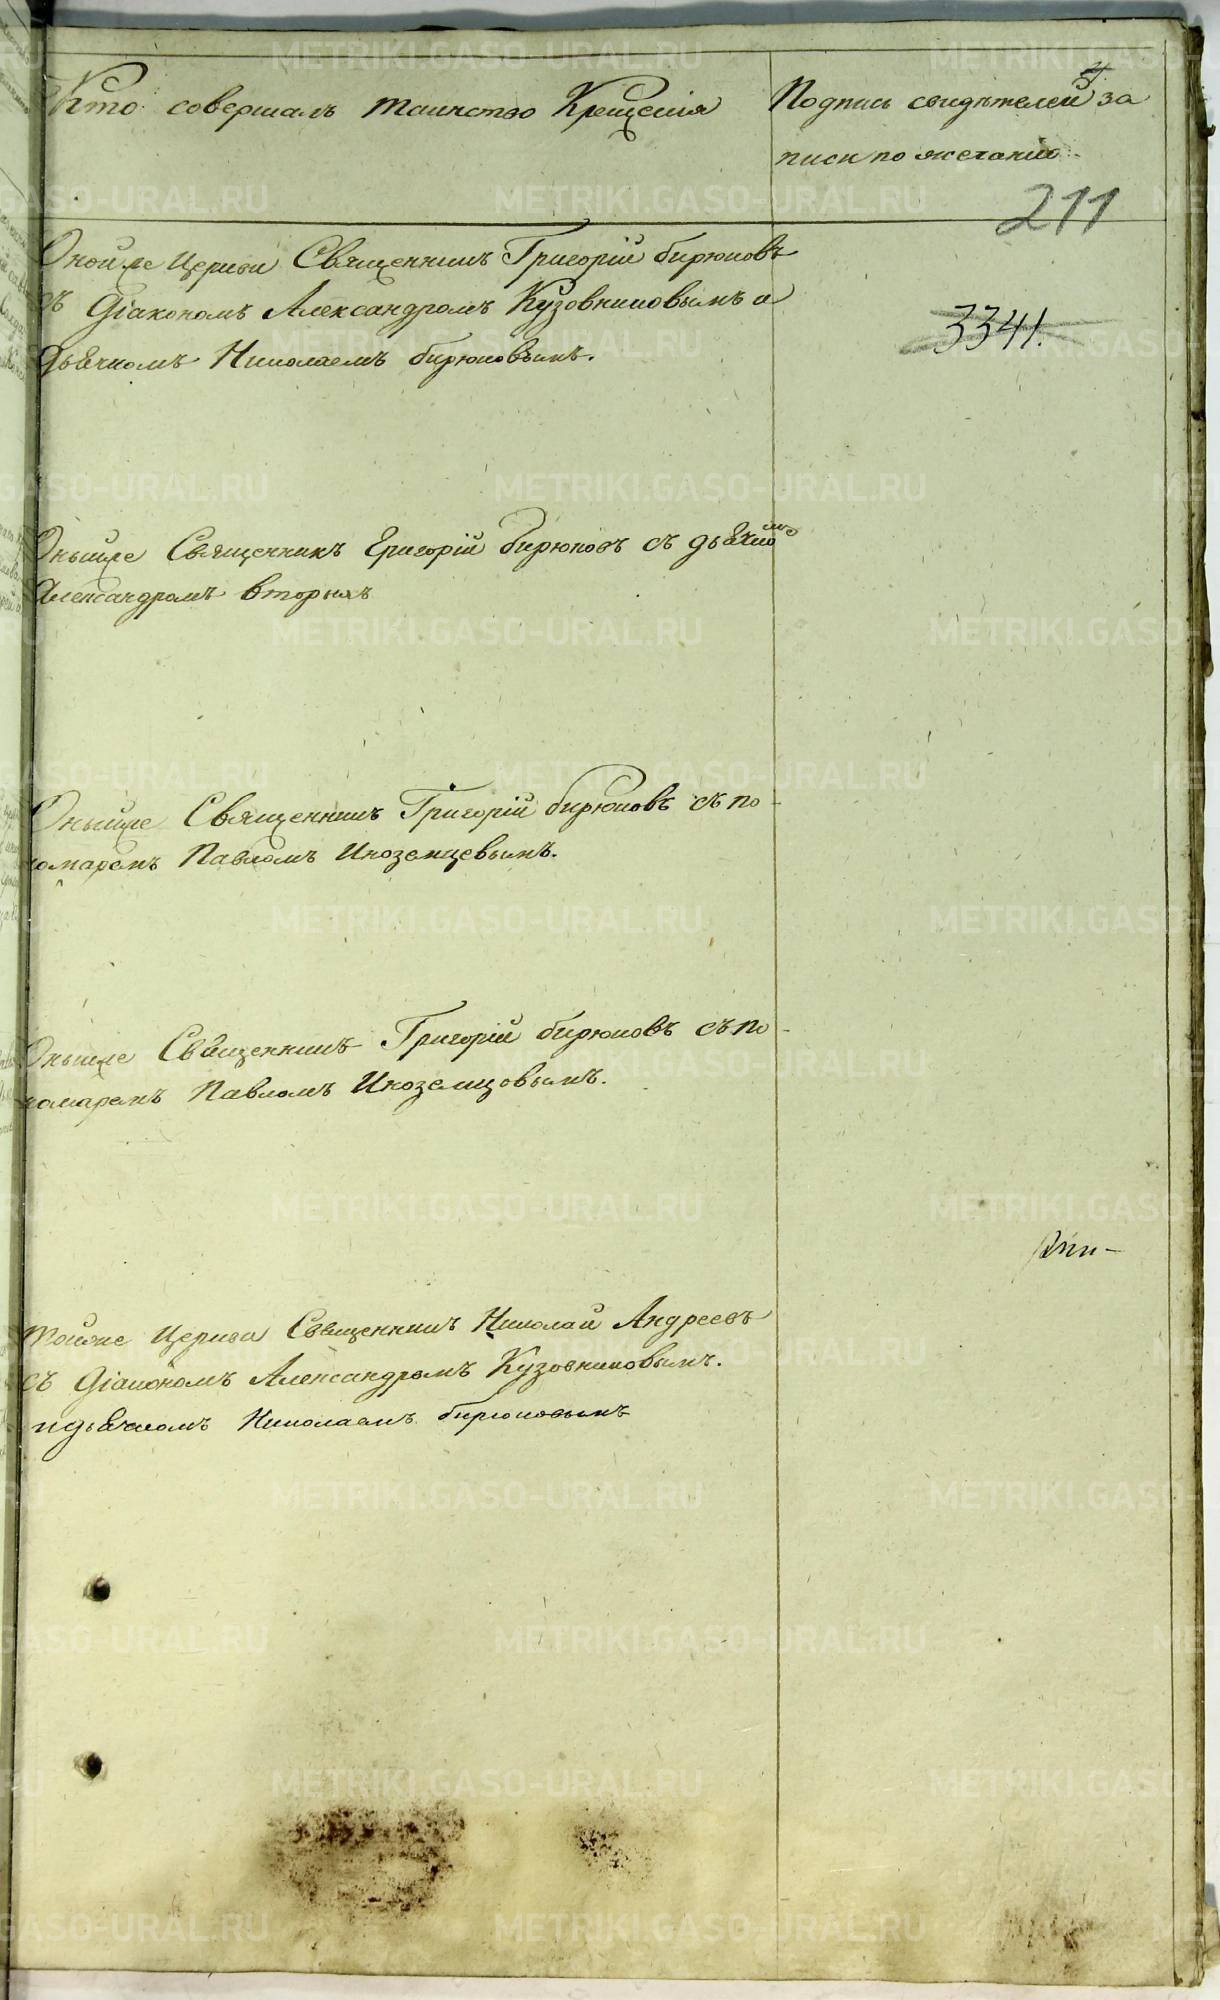 Кто совершалъ таинство Крещенія
Подпись свидѣтелей за
писи по желанію
211
Онойже Церкви Священникъ Григорій бирюковъ
съ Діакономъ Александромъ Кузовниковымъ и
дьячкомъ Николаемъ бирюковымъ.
3341.
Оныйже Священникъ Григорій бирюковъ съ дьячкомъ
Александромъ вторыхъ
Оныйже Священникъ Григорій бирюковъ съ по-
номаремъ Павломъ Иноземцевымъ.
Оныйже Священникъ Григорій бирюковъ съ по-
номаремъ Павломъ Иноземцовымъ.
тойже Церкви Священникъ Николай Андреевъ
съ Діакономъ Александромъ Кузовниковымъ.
идьячкомъ Николаемъ бирюковымъ
METRIKI.GASO-URAL.RU